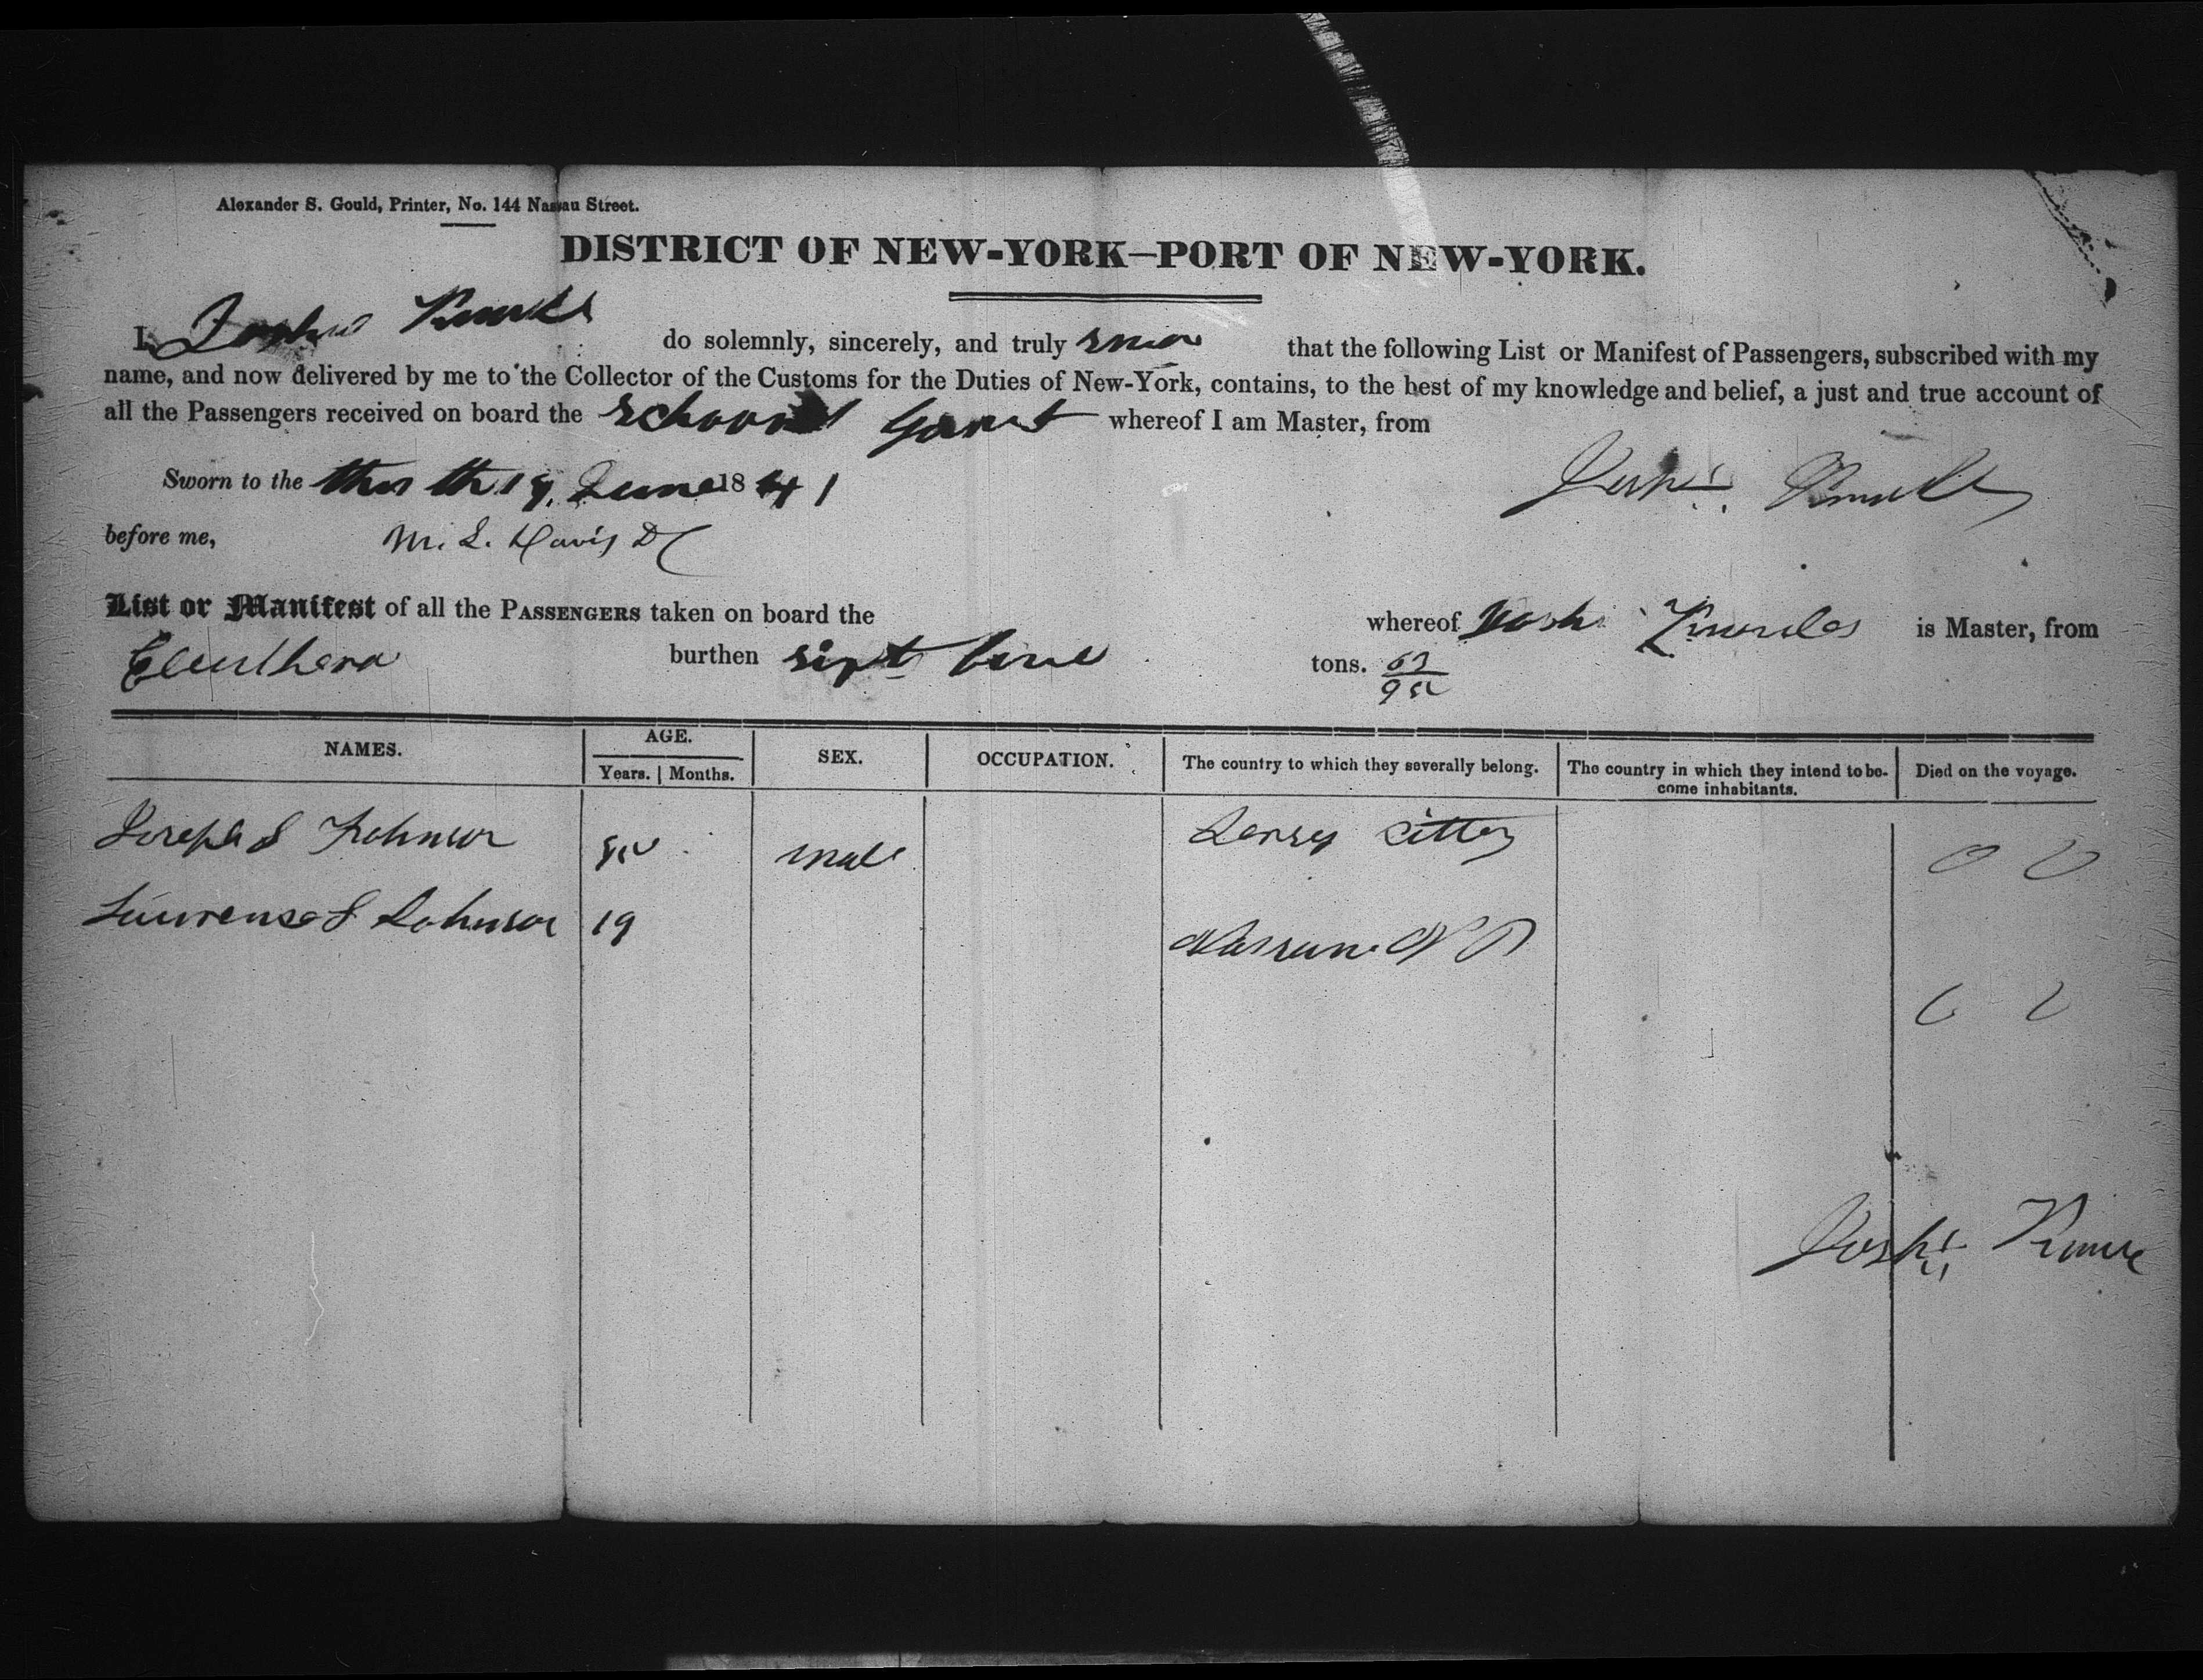 Alexander S. Gould, Printer, No. 144 Nassau Street.
DISTRICT OF NEW-YORK—PORT OF NEW-YORK.
I, Joshua do solemnly, sincerely, and truly that the following List or Manifest of Passengers, subscribed with my
name, and now delivered by me to the Collector of the Customs for the Duties of New-York, contains, to the best of my knowledge and belief, a just and true account of
all the Passengers received on board the whereof I am Master, from
Sworn to the this th 19 June 1841
before me, M. L. Davis DC
List or Manifest of all the PASSENGERS taken on board the whereof is Master, from
Eleuthera burthen tons. 
NAMES. AGE. Years. Months. SEX. OCCUPATION. The country to which they severally belong. The country in which they intend to become inhabitants. Died on the voyage.
Joseph S Johnson male Jersey Citty
Lawrense S Johnson 19 N P